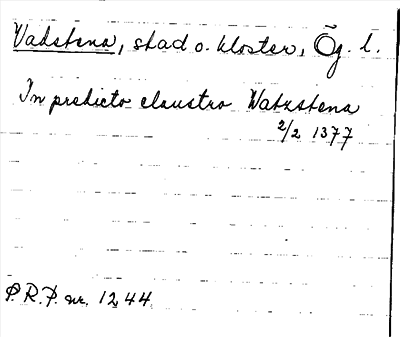 Vadstena, stad o. kloster, Ög. l.
In predicto claustro Watzstena
2/2 1377
P.R.P. nr. 1244